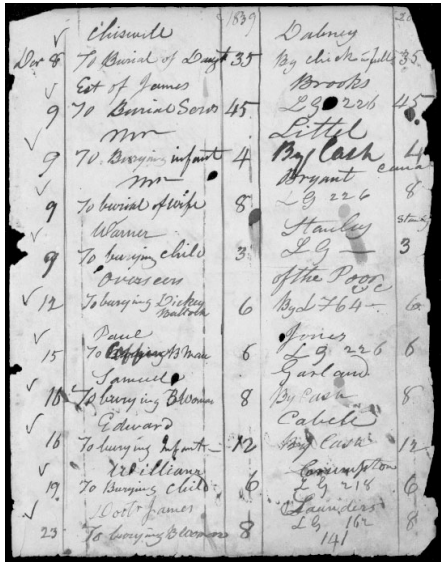 1839
Chiswell Dabney
Dec 8 To Burial of Daugt 35 By check in full 35
Est of James Brooks
9 To Burial Servt 45 L G 226 45
Mr Littel
9 To Burying infant 4 By Cash 4
Mr Bryant Canal
9 To burial of wife 8 L G 226 8
Warner Stanley
9 To burying child 3 L G 3
Overseers of the Poor
12 To burying Dickey Bullock 6 By L 764 6
Paul Jones
15 To B Man 6 L G 226 6
Samuel Garland
16 To burying B Woman 8 By Cash 8
Edward Cabell
16 To burying Infant 12 By Cash 12
William Crumpton
19 To Burying Child 6 L G 218 6
Doct James Saunders
23 To burying B Woman 8 L G 162 8
141